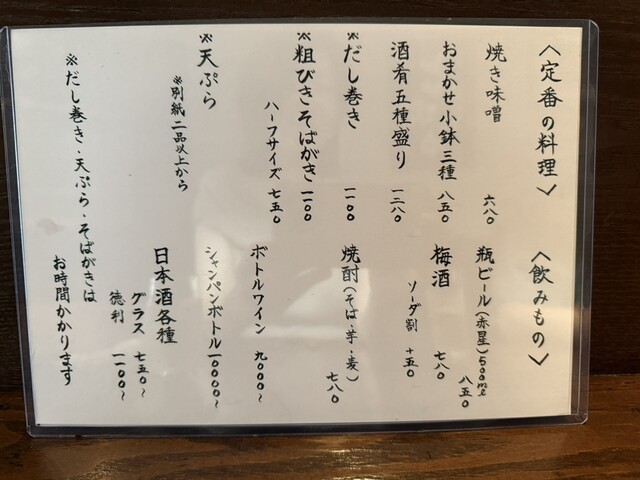 〈定番の料理〉
焼き味噌 六八〇
おまかせ小鉢三種 八五〇
酒肴五種盛り 一二八〇
※だし巻き 一一〇〇
※粗びきそばがき 一一〇〇
ハーフサイズ 七五〇
※天ぷら
※別紙二品以上から
〈飲みもの〉
瓶ビール(赤星)500ml
八五〇
梅酒 七八〇
ソーダ割 +五〇
焼酎(そば・芋・麦)
七八〇
ボトルワイン 九〇〇〇~
シャンパンボトル一〇〇〇〇~
日本酒各種
グラス 七五〇~
徳利 一一〇〇~
※だし巻き・天ぷら・そばがきは
お時間かかります